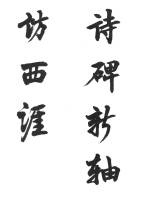 诗碑新轴
访西涯